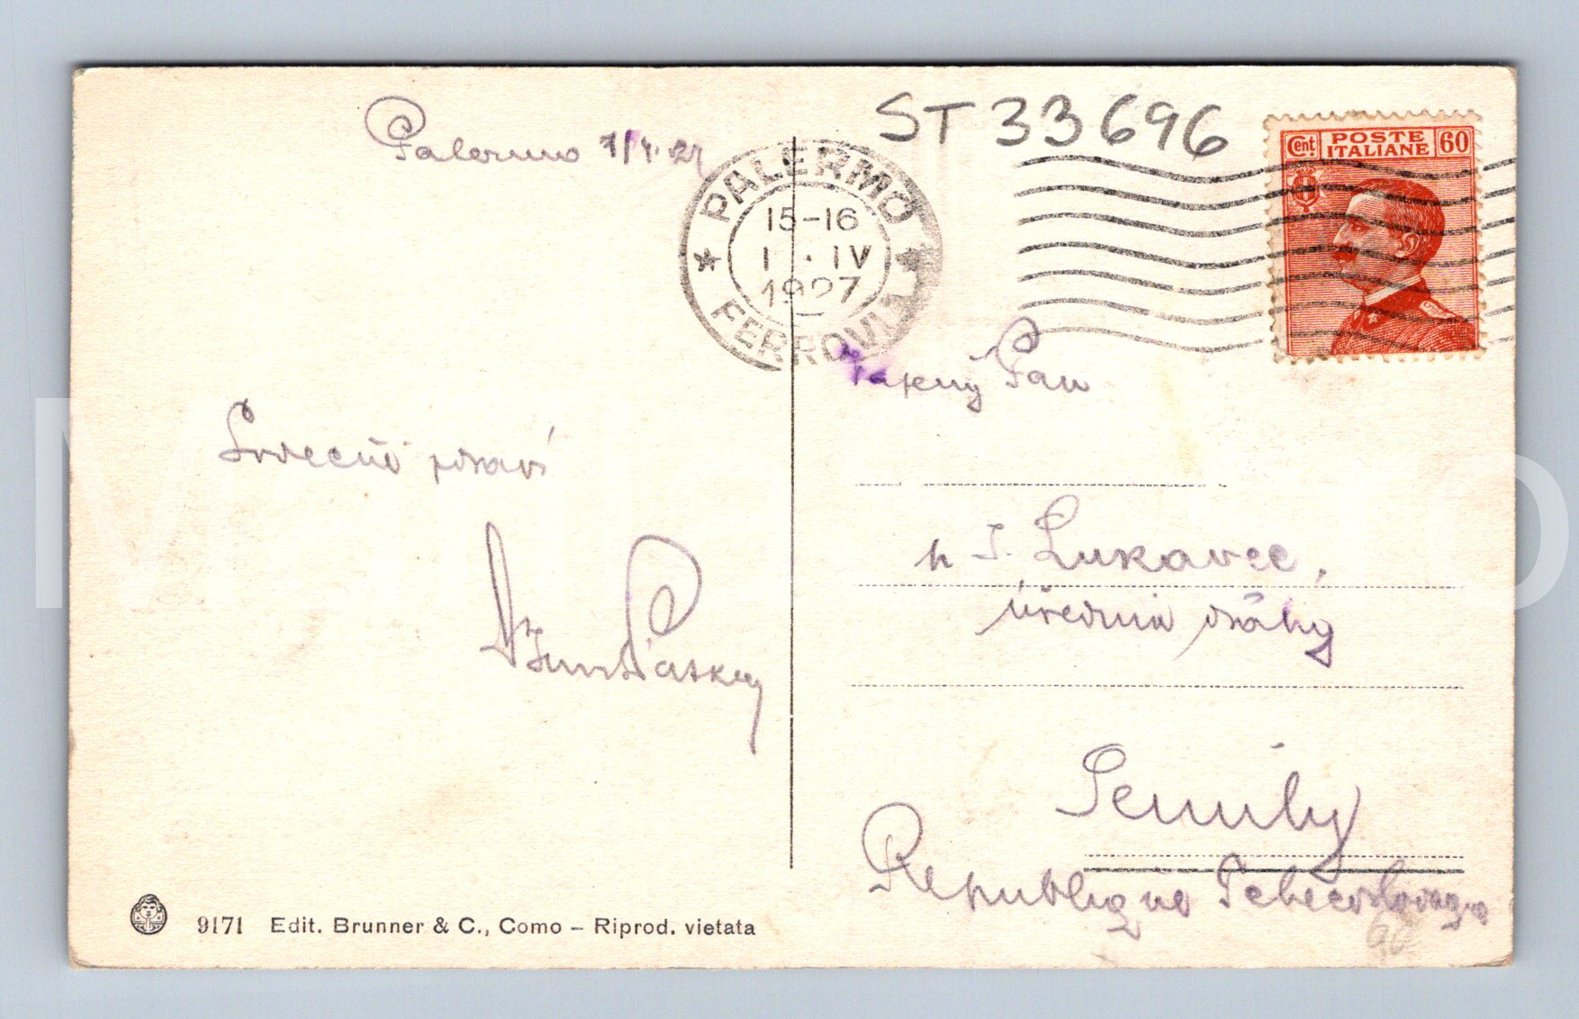 Palermo 1/4.27
ST 33696
Cent. POSTE ITALIANE 60
PALERMO
15-16
1 · IV
1927
FERROVIA
Pan
Srdečně zdraví
p. J. Lukavec,
úředník dráhy
Semily
Republique Tchecoslovaque
9171 Edit. Brunner & C., Como – Riprod. vietata